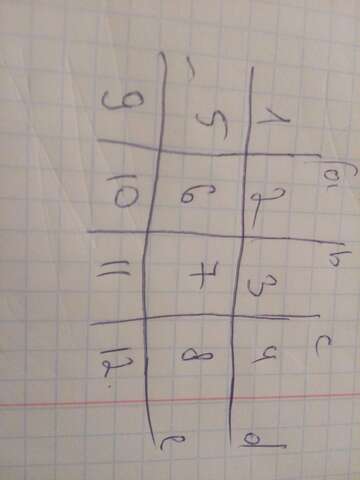 a b c
1 2 3 4
d
5 6 7 8
e
9 10 11 12